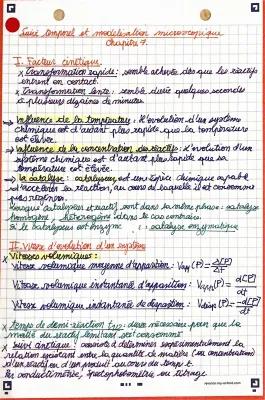 Suivi temporel et modélisation microscopique
Chapitre 7.
I. Facteur cinétique.
x Transformation rapide : semble achevée dès que les réactifs
entrent en contact.
x Transformation lente : semble durée quelques secondes
à plusieurs dizaines de minutes.
→ Influence de la température : l'évolution d'un système
chimique est d'autant plus rapide que la température
est élevée.
→ Influence de la concentration des réactifs : l'évolution d'un
système chimique est d'autant plus rapide que sa
température est élevée.
x la catalyse : catalyseur est une espèce chimique capable
d'accélérer la réaction, au cours de laquelle il est consommé
puis régénéré.
Lorsque catalyseur et réactif sont dans la même phase : catalyse
homogène, hétérogène dans le cas contraire.
Si le catalyseur est enzyme : catalyse enzymatique
II. Vitesse d'évolution d'un système
x Vitesses volumiques :
Vitesse volumique moyenne d'apparition : Vapp(P) = Δ[P]/Δt
Vitesse volumique instantanée d'apparition : Vapp(P) = d[P]/dt
Vitesse volumique instantanée de disparition : Vdisp(P) = -d[P]/dt
x Temps de demi-réaction t1/2 : durée nécessaire pour que la
moitié du réactif limitant soit consommé
x Suivi cinétique : consiste à déterminer expérimentalement la
relation existant entre la quantité de matière (ou concentration)
d'un réactif ou d'un produit au cours du temps t.
ex conductimétrie, spectrophotométrie ou titrage